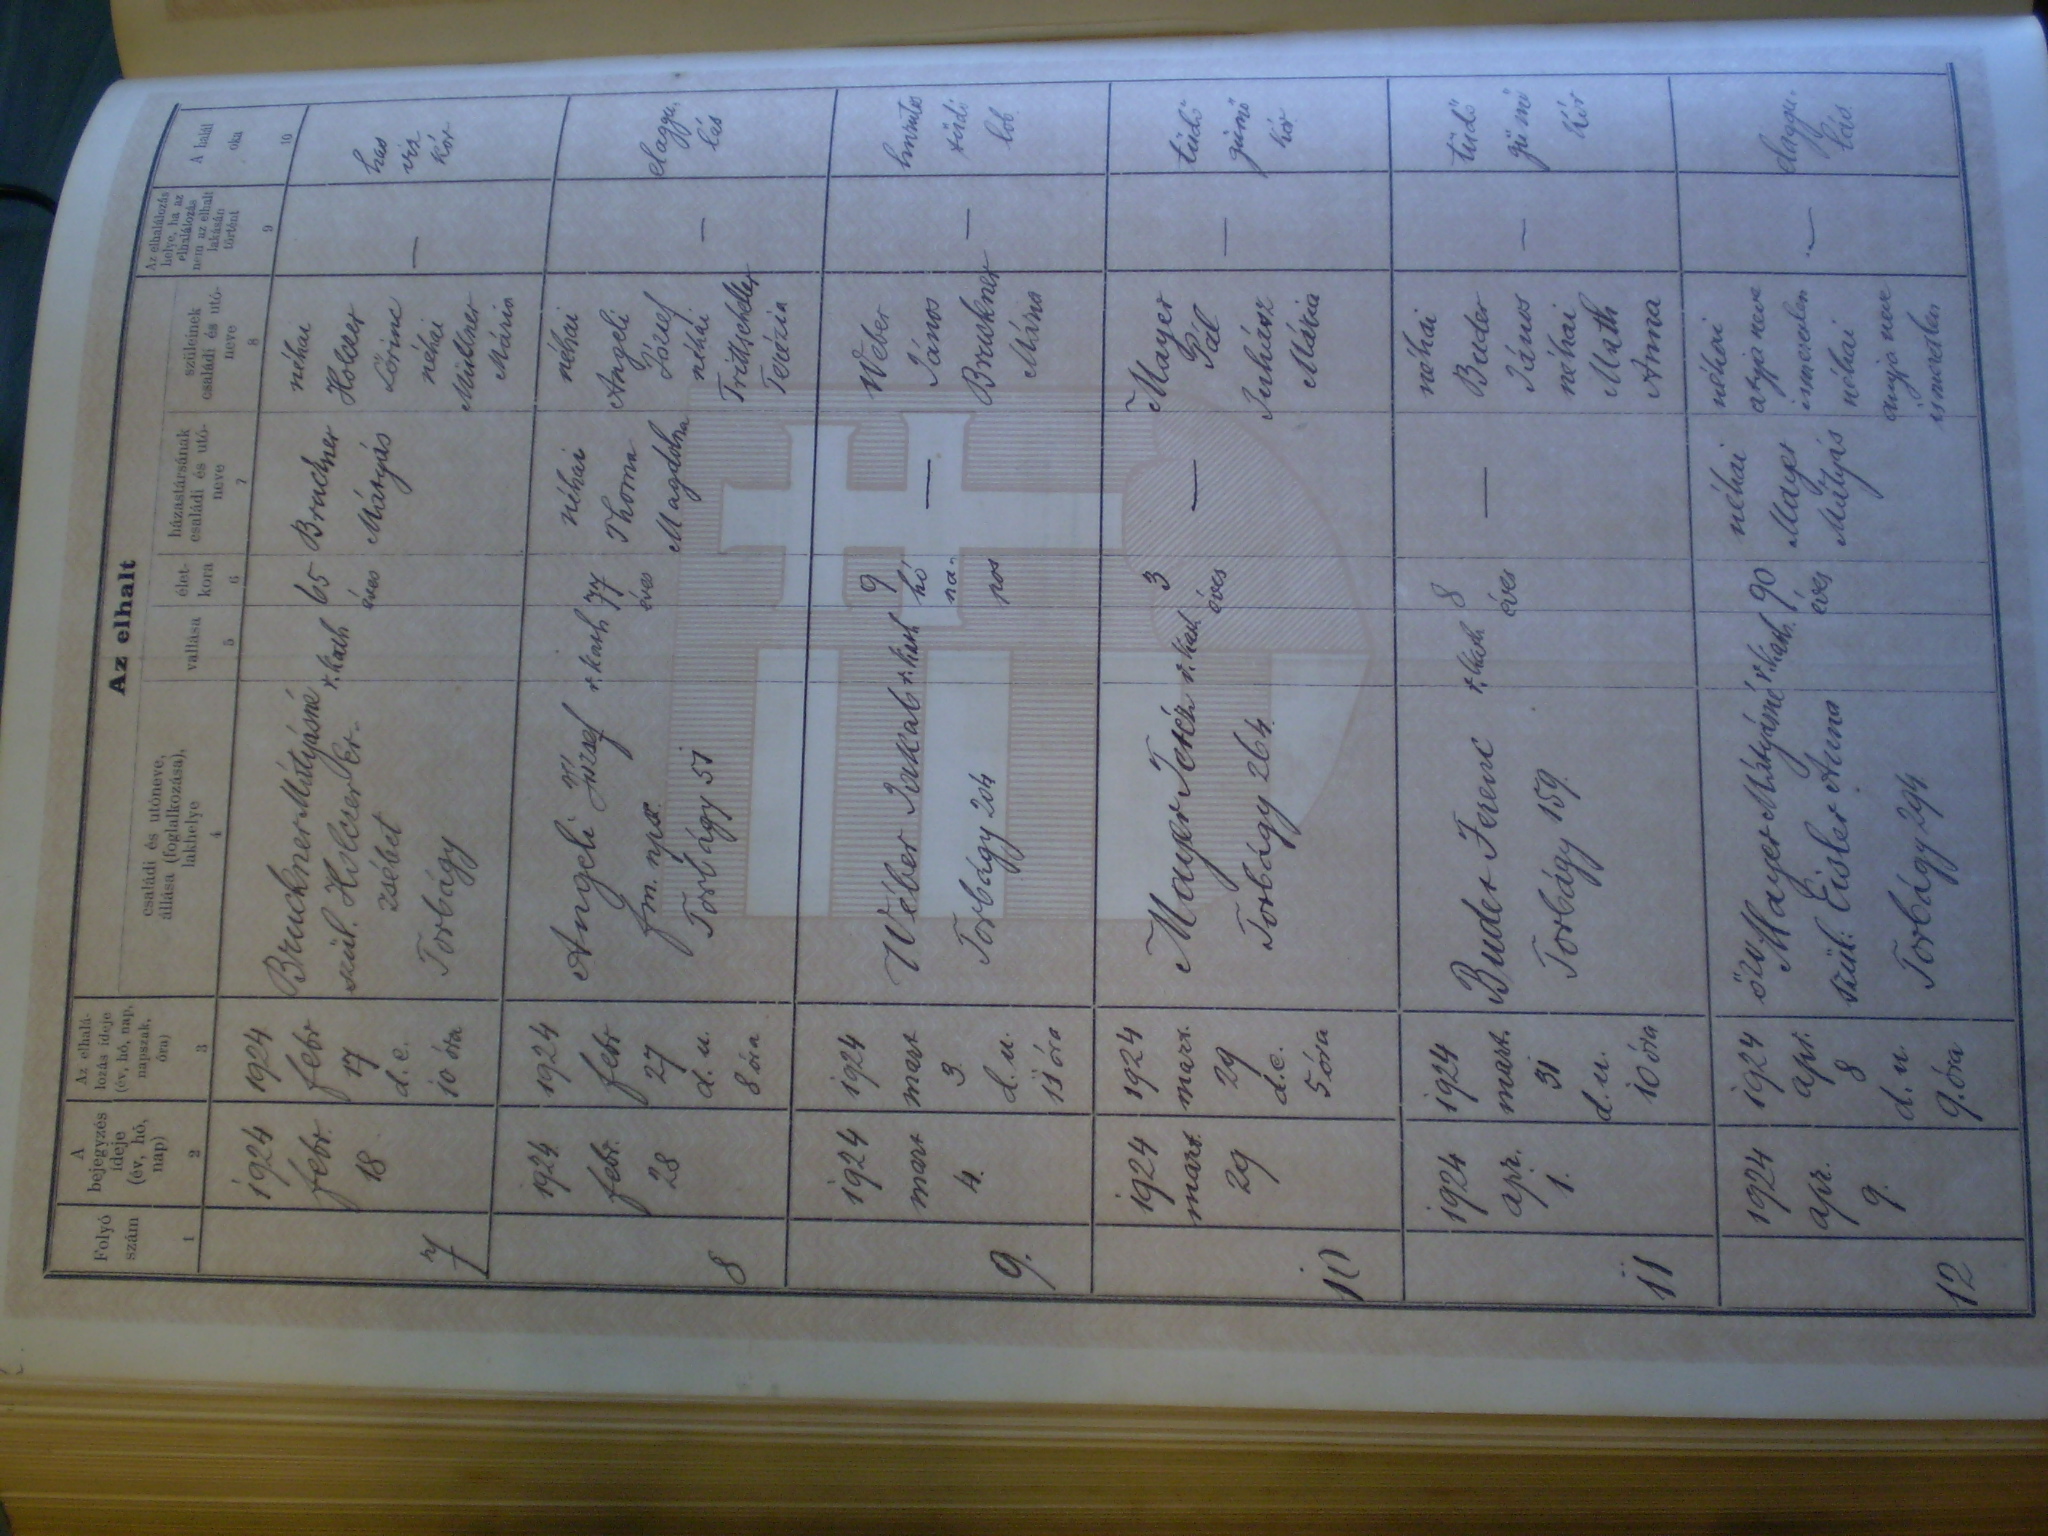 Az elhalt
Folyó
szám
A
bejegyzés
ideje
(év, hó,
nap)
Az elhalá-
lozás ideje
(év, hó, nap,
napszak,
óra)
családi és utóneve,
állása (foglalkozása),
lakhelye
vallása
élet-
kora
házastársának
családi és utó-
neve
szüleinek
családi és utó-
neve
Az elhalálozás
helye, ha az
elhalálozás
nem az elhalt
lakásán
történt
A halál
oka
1
2
3
4
5
6
7
8
9
10
7
1924
febr.
18
1924
febr
17
d. e.
10 óra
Bruckner Mátyásné
szül. Holczer Er-
zsébet
Torbágy
r. kath
65
éves
Bruckner
Mátyás
néhai
Holczer
Lőrinc
néhai
Mária
—
has
víz
kór
8
1924
febr.
28
1924
febr
27
d. u.
8 óra
Angeli József
fm. nps.
Torbágy 51
r. kath
77
éves
néhai
Thoma
Magdolna
néhai
Angeli
József
néhai
Terézia
—
elaggu-
lás
9.
1924
mart
4.
1924
mart
3.
d. u.
11 óra
Wéber Jakab
Torbágy 204
r. kath
9
hó
na-
pos
—
Weber
János
Bruckner
Mária
—
hurutos
tüdő
lob
10
1924
mart.
29
1924
mart.
29
d. e.
5 óra
Mayer Teréz
Torbágy 264.
r. kath.
3
éves
—
Mayer
Pál
Juhász
Mária
—
tüdő
gümő
kór
11
1924
apr.
1.
1924
mart.
31
d. u.
10 óra
Buder Ferenc
Torbágy 159.
r. kath.
8
éves
—
néhai
Buder
János
néhai
Math
Anna
—
tüdő
gümő
kór
12
1924
apr.
9.
1924
apr.
8
d. u.
9. óra
özv. Mayer Mátyásné
szül: Eisler Anna
Torbágy 294
r. kath.
90
éves
néhai
Mayer
Mátyás
néhai
atyja neve
ismeretlen
néhai
anyja neve
ismeretlen
—
elaggu-
lás